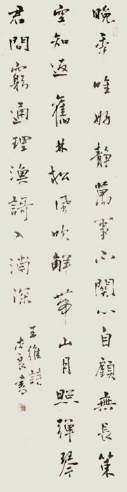 晚秊唯好靜萬事不關心自顧無長策
空知返舊林松風吹解帶山月照彈琴
君問窮通理漁謌入浦深
王維詩
良書